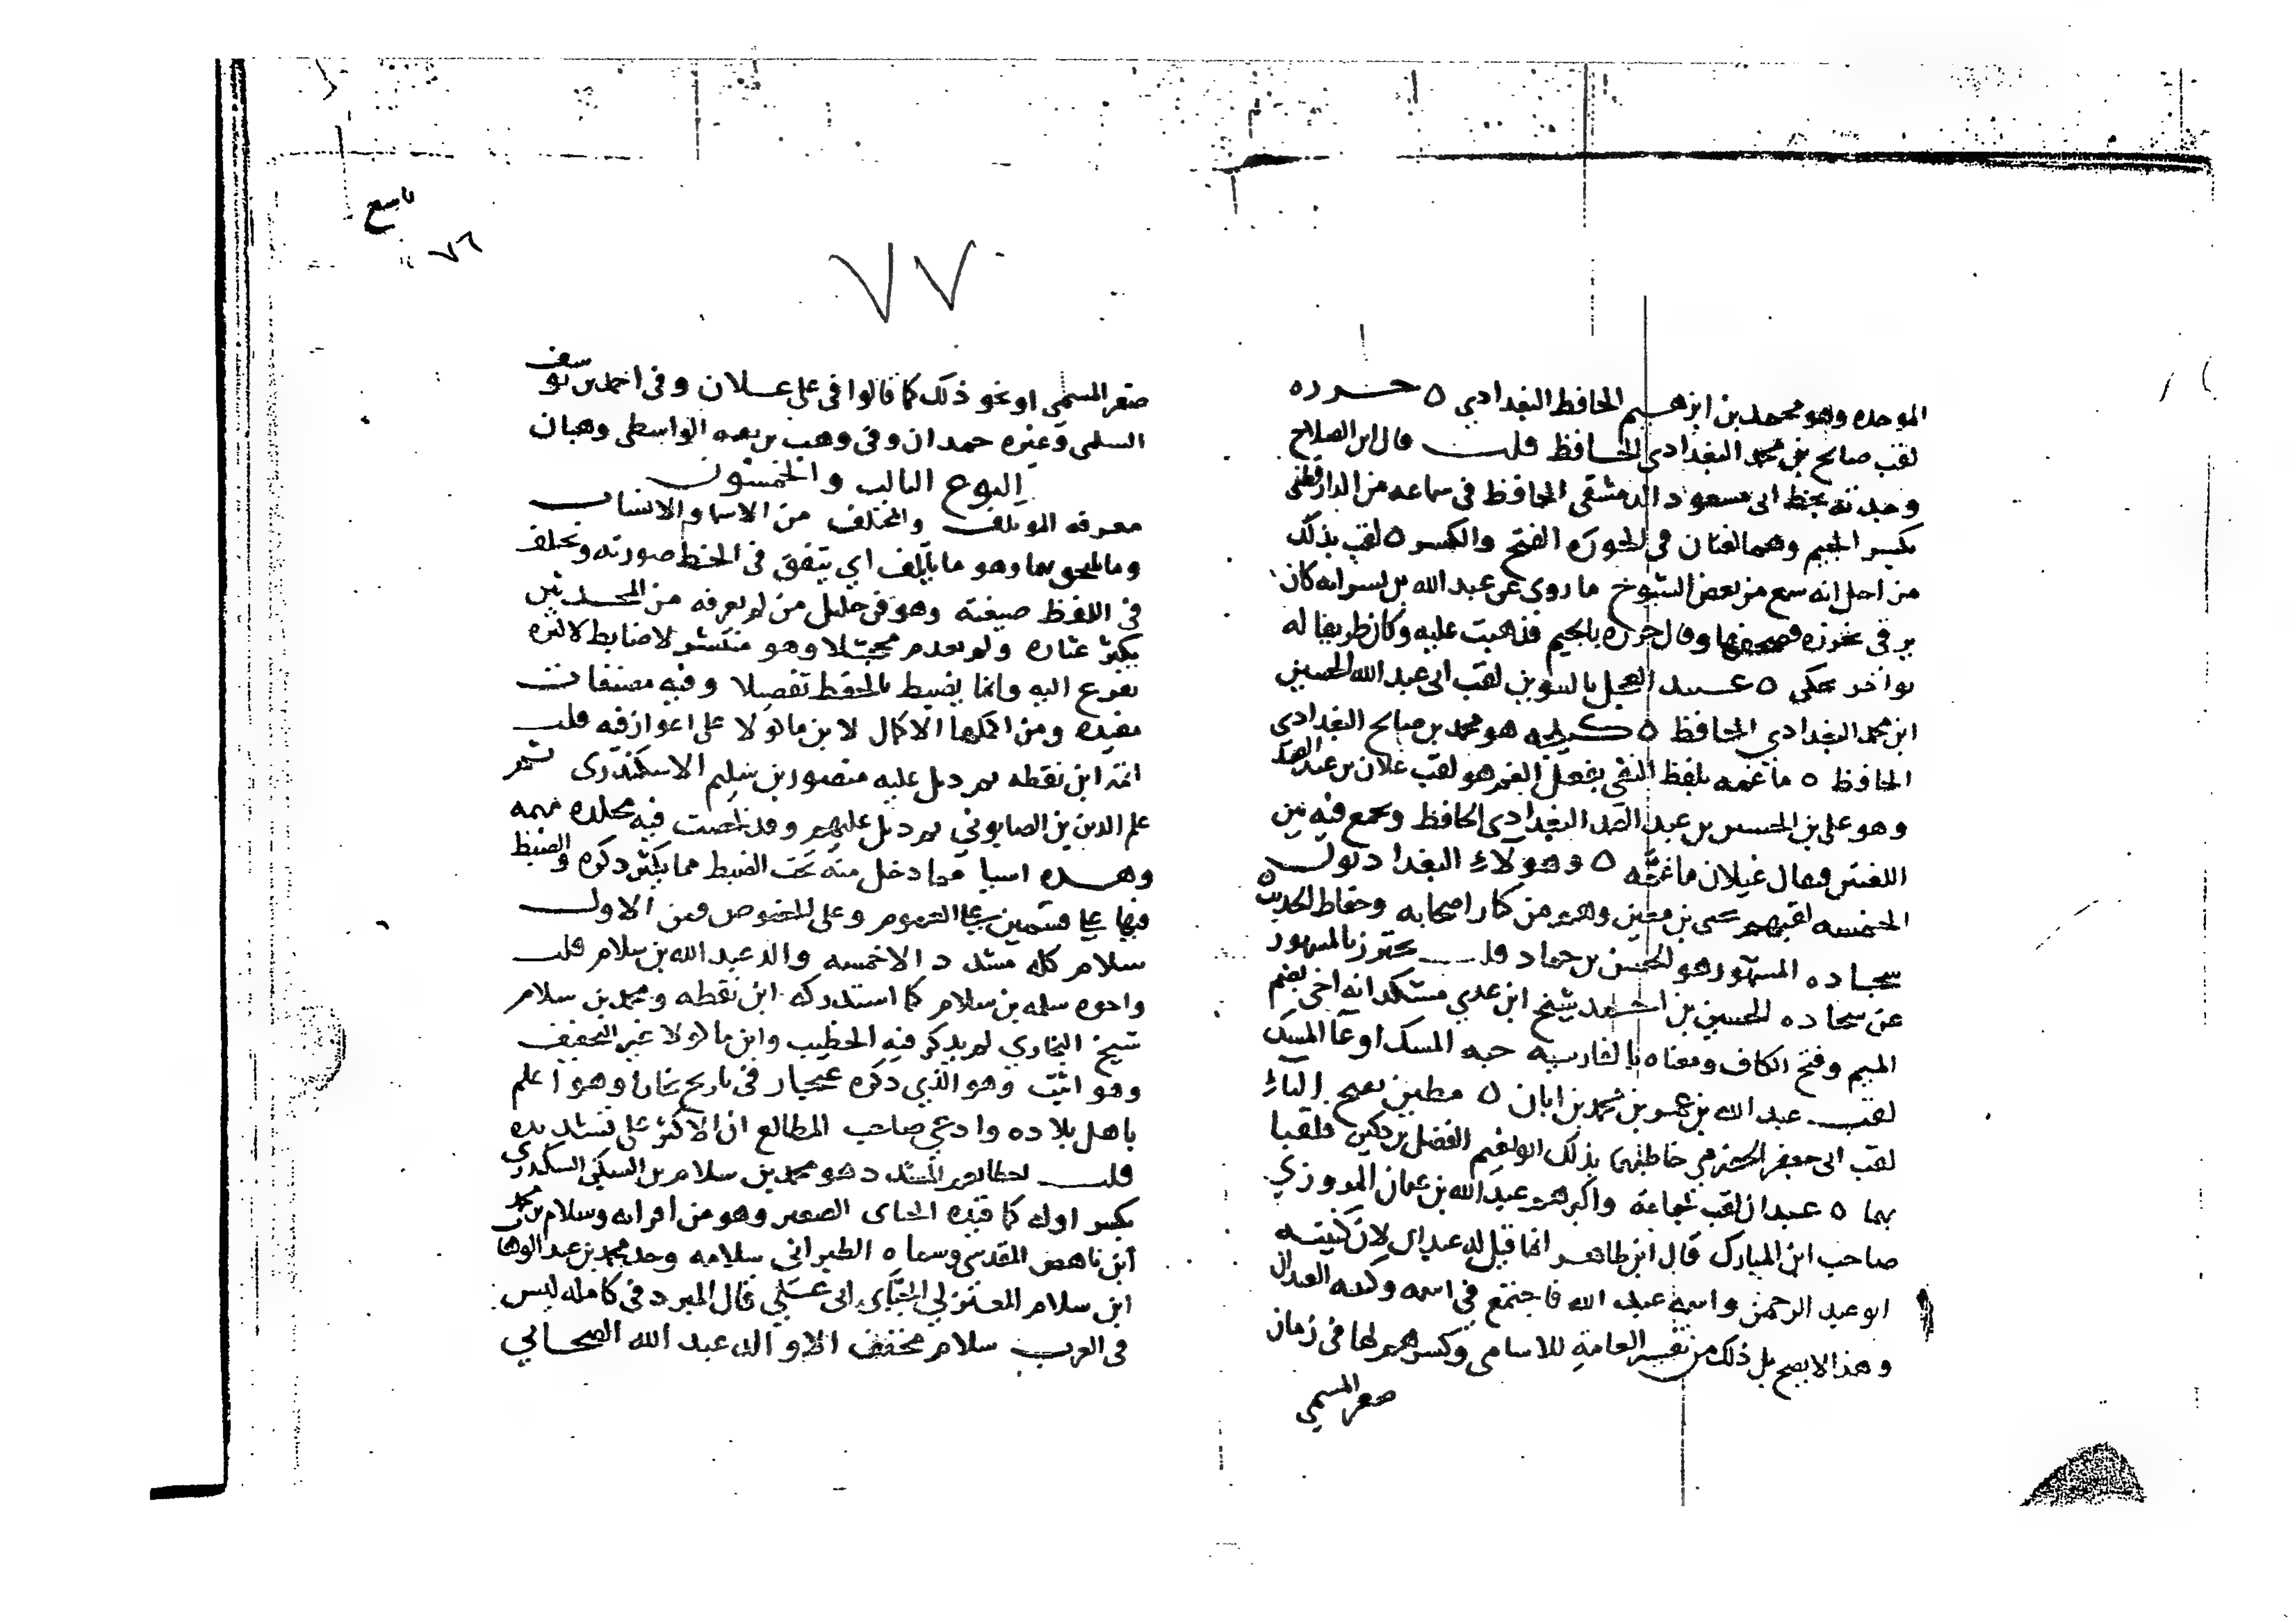 الموحده وهو محمد بن ابرهيم الحافظ البغدادي ٥ جزره
لقب صالح بن محمد البغدادي الحافظ قلت قال ابن الصلاح
وجدته بخط ابى مسعود الدمشقى الحافظ في سماعه من الدارقطنى
بكسر الجيم وهما لغتان في الجزره الفتح والكسر ٥ لقب بذلك
من اجل انه سمع من بعض الشيوخ ما روى عن عبد الله بن بسر انه كان
يرقى بخرزه فصحفها وقال جزره بالجيم فذهبت عليه وكان ظريفا له
نوادر تحكى ٥ عبيد العجل بالتنوين لقب ابى عبد الله الحسين
ابن محمد البغدادي الحافظ ٥ كيلجه هو محمد بن صالح البغدادى
الحافظ ٥ ما غمه بلفظ النفى بفعل الغم هو لقب علان بن عبد الصمد
وهو على بن الحسين بن عبد الصمد البغدادى الحافظ ويجمع فيه بين
اللقبين فيقال علان ما غمه ٥ وهولاء البغداديون
الخمسه لقبهم يحيى بن معين وهم من كبار اصحابه وحفاظ الحديث ٥
سجاده المشهور هو الحسن بن حماد قلت يحترز بالمشهور
عن سجاده الحسين بن احمد شيخ ابن عدي مشكدانه اخى بضم
الميم وفتح الكاف ومعناه بالفارسيه حبه المسك او وعا المسك
لقب عبد الله بن عمر بن محمد بن ابان ٥ مطين بفتح الياء
لقب ابى جعفر الحضرمي خاطبهما بذلك ابو نعيم الفضل بن دكين فلقبا
بهما ٥ عبدان لقب لجماعة واكبرهم عبد الله بن عثمان المروزي
صاحب ابن المبارك قال ابن طاهر انما قيل له عبدان لان كنيته
ابو عبد الرحمن واسمه عبد الله فاجتمع في اسمه وكنيته العبدان
وهذا لا يصح بل ذلك من تغيير العامة للاسامى وكسرهم لها فى زمان
صغر المسمي
تاسع
٧٦
٧٧
صغر المسمي او نحو ذلك كما قالوا في على علان وفى احمد بن يوسف
السلمى وغيره حمدان وفى وهب بن بقيه الواسطى وهبان
النوع الثالث والخمسون
معرفه الموتلف والمختلف من الاسما والانساب
وما يلحق بهما وهو ما يأتلف اي يتفق في الخط صورته ويختلف
في اللفظ صيغته وهو فن جليل من لم يعرفه من المحدثين
يكثر عثاره ولم يعدم مخجلا وهو منتشر لا ضابط لاكثره
يفزع اليه وانما يضبط بالحفظ تفصيلا وفيه مصنفات
مفيده ومن اكملها الاكمال لابن ماكولا على اعواز فيه قلت
اتمه ابن نقطه ثم ذيل عليه منصور بن سليم الاسكندرى ثم
علم الدين بن الصابوني ثم ذيل عليهم وقد لخصت فيه مجلده مهمه
وهذه اشيا مما دخل منه تحت الضبط مما يكثر ذكره والضبط
فيها على قسمين على العموم وعلى الخصوص فمن الاول
سلام كله مشدد الا خمسه والد عبد الله بن سلام قلت
واخوه سلمه بن سلام كما استدركه ابن نقطه ومحمد بن سلام
شيخ البخاري لم يذكر فيه الخطيب وابن ماكولا غير التخفيف
وهو اثبت وهو الذي ذكره غنجار في تاريخ بخارا وهو اعلم
باهل بلاده وادعى صاحب المطالع ان الاكثر على تشديده
قلت المشدد هو محمد بن سلام بن السكن السكندري
بكسر اوله كما قيده الصغير وهو من اقرانه وسلام بن محمد
ابن ناهض المقدسى وسماه الطبراني سلامه وجد محمد بن عبد الوهاب
ابن سلام المعتزلي الجبّاى ابى علي قال المبرد في كامله ليس
فى العرب سلام مخفف الا والد عبد الله الصحابي